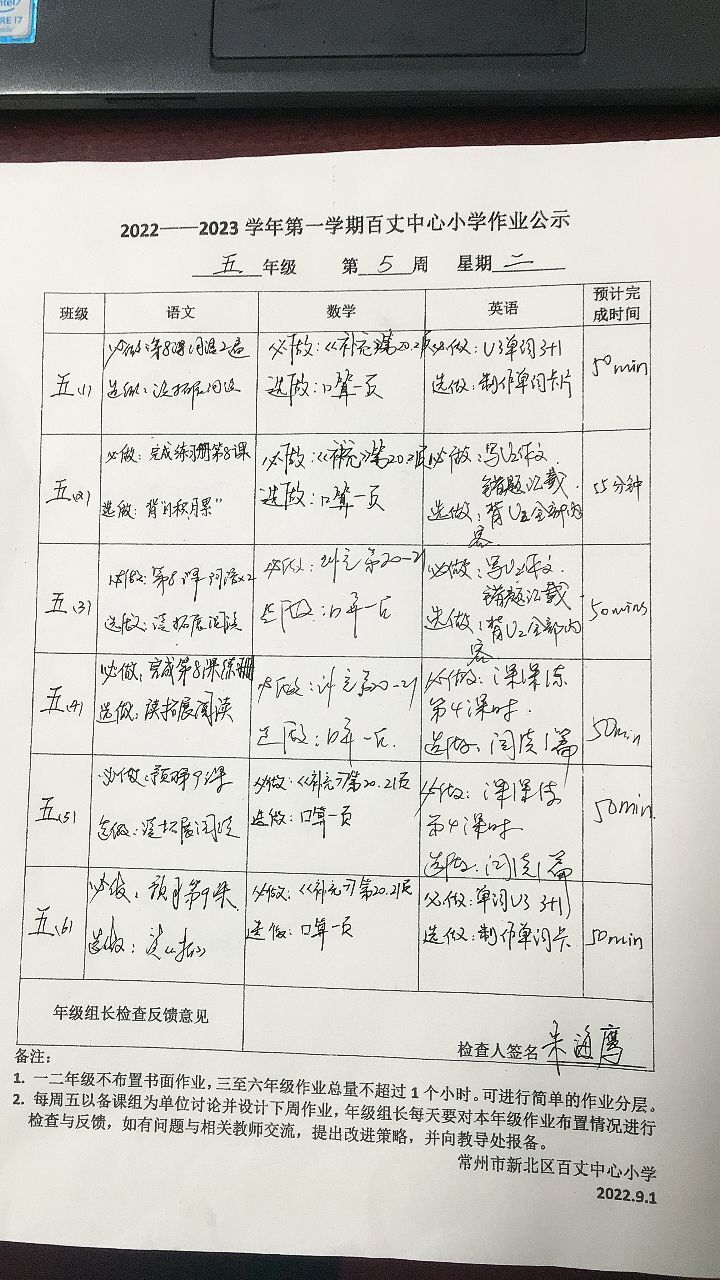 intel
CORE i7
inside
2022——2023 学年第一学期百丈中心小学作业公示
五 年级 第 5 周 星期 二
班级 语文 数学 英语 预计完成时间
五(1)
必做:第8课词语2遍
选做:读拓展阅读
必做:《补充》第20.21页
选做:口算一页
必做:U3单词3+1
选做:制作单词卡片
50min
五(2)
必做:完成练习册第8课
选做:背"积月累"
必做:《补充》第20.21页
选做:口算一页
必做:写U2作文.
错题记载.
选做:背U2全部内容
55分钟
五(3)
必做:第8课 词语x2
选做:读拓展阅读
必做:补充第20-21
选做:口算一页
必做:写U2作文.
错题记载
选做:背U2全部内容
50mins
五(4)
必做:完成第8课练册
选做:读拓展阅读
必做:补充第20-21
选做:口算一页.
必做:课课练
第4课时.
选做:阅读1篇
50min
五(5)
必做:预习9课
选做:读拓展阅读
必做:《补充》第20.21页
选做:口算一页
必做:课课练
第4课时
选做:阅读1篇
50min.
五(6)
必做:预习第9课.
选做:读《拓》
必做:《补充》第20.21页
选做:口算一页
必做:单词U3 3+1
选做:制作单词卡
50min
年级组长检查反馈意见
检查人签名 朱海鹰
备注:
1. 一二年级不布置书面作业,三至六年级作业总量不超过 1 个小时。可进行简单的作业分层。
2. 每周五以备课组为单位讨论并设计下周作业,年级组长每天要对本年级作业布置情况进行
检查与反馈,如有问题与相关教师交流,提出改进策略,并向教导处报备。
常州市新北区百丈中心小学
2022.9.1